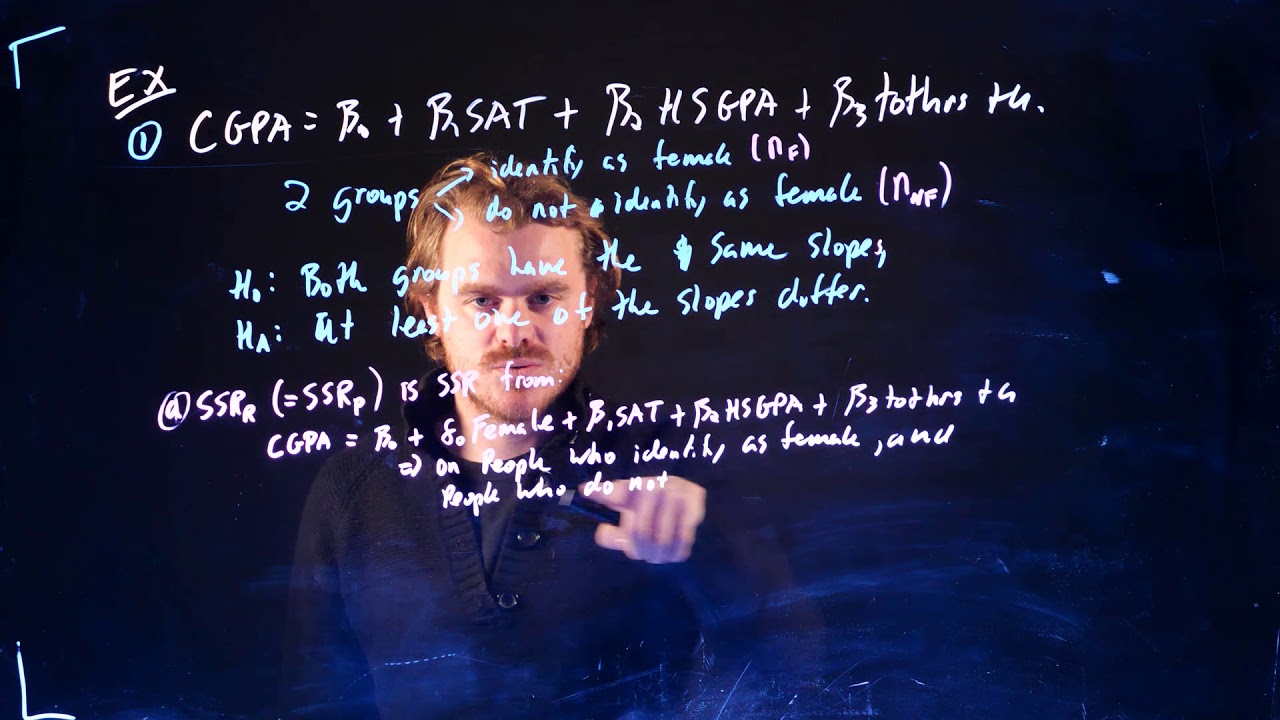 EX
① CGPA = β₀ + β₁SAT + β₂ HSGPA + β₃ tothrs + u.
2 groups → identify as female (n_F)
→ do not identify as female (n_NF)
H₀: Both groups have the same slopes,
H_A: At least one of the slopes differ.
ⓐ SSR_R (=SSR_P) is SSR from:
CGPA = β₀ + δ₀Female + β₁SAT + β₂HSGPA + β₃tothrs + u
⇒ on People who identify as female, and
People who do not